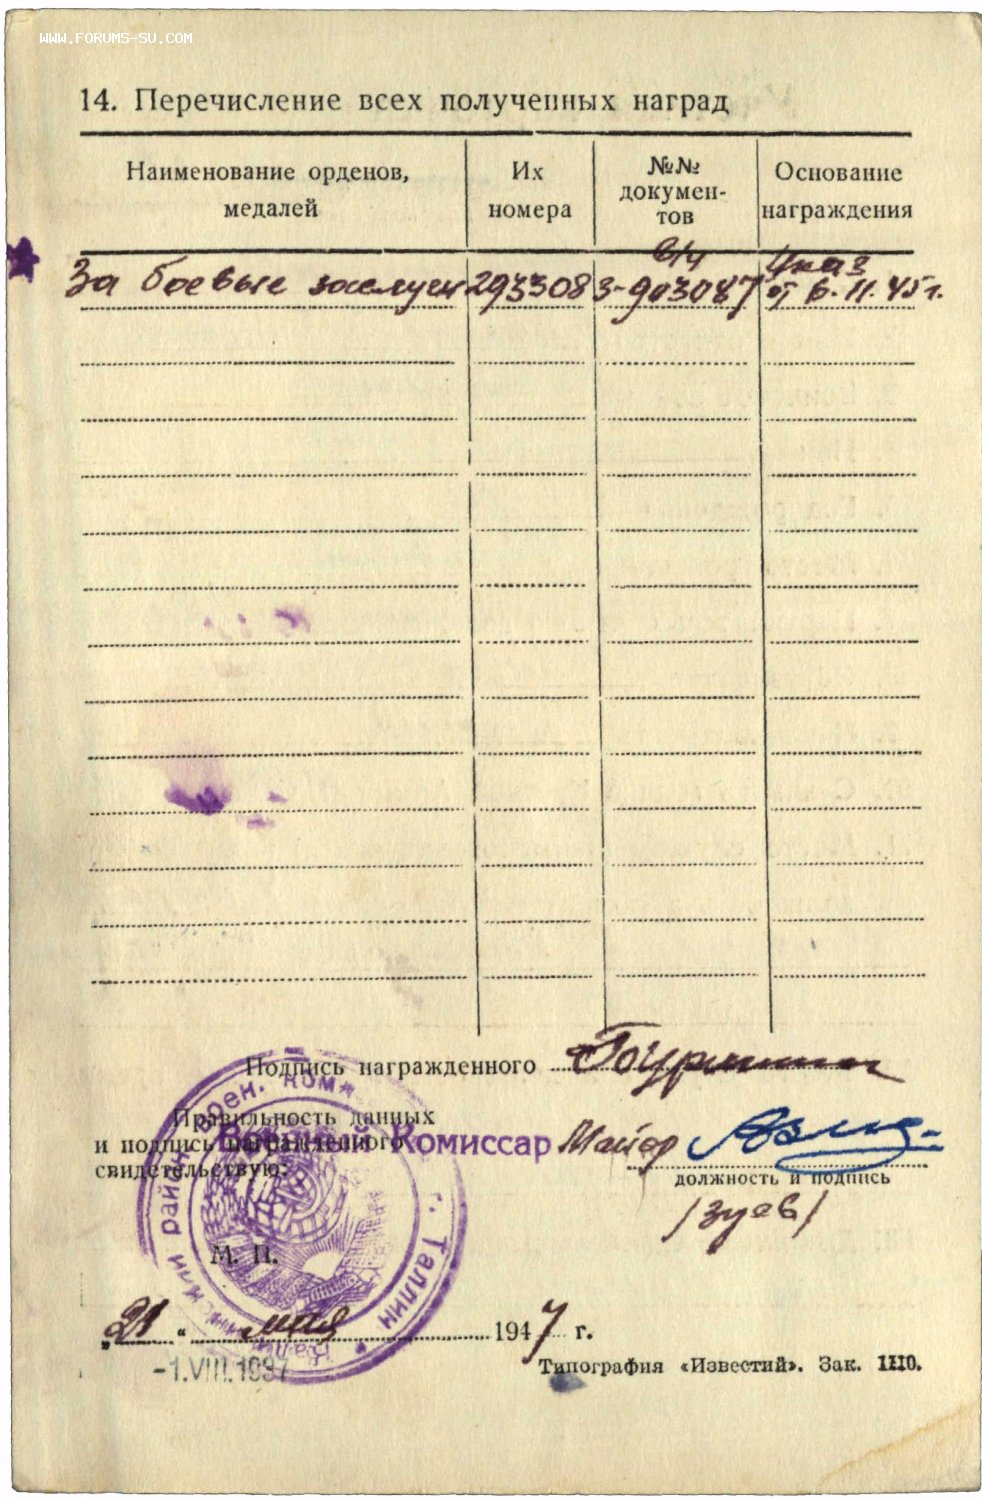 WWW.FORUMS-SU.COM
14. Перечисление всех полученных наград
Наименование орденов, медалей
Их номера
№№ докумен-тов
Основание награждения
За боевые заслуги 2933083 в/ч З-903087 Указ от 6.11.45 г.
Подпись награжденного
Правильность данных
и подпись награжденного
свидетельствую:
Военный Комиссар Майор
должность и подпись
/Зуев/
М. П.
район. воен. кома г. Таллин
„21“ мая 1947 г.
-1.VIII.1987
Типография «Известий». Зак. 1110.